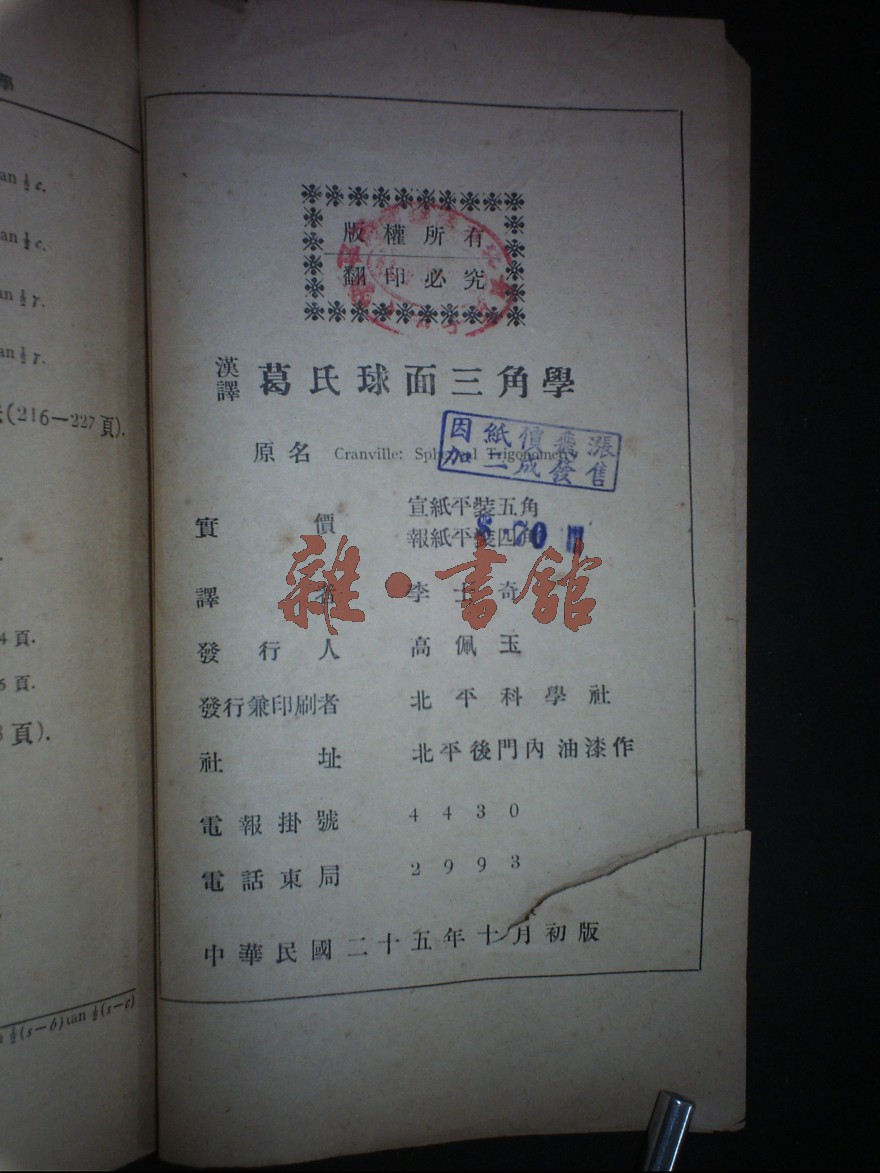 學
an ½ c.
an ½ c.
an ½ γ.
an ½ γ.
(216—227頁).
4 頁.
6 頁.
頁).
½(s−b) tan ½(s−c)
版權所有
翻印必究
漢譯 葛氏球面三角學
原名 Cranville: Spherical Trigonometry
因紙價飛漲
加二成發售
實價 宣紙平裝五角
報紙平裝四角
譯者 李士奇
發行人 高佩玉
發行兼印刷者 北平科學社
社址 北平後門內油漆作
電報掛號 4430
電話東局 2993
中華民國二十五年十月初版
雜·書館